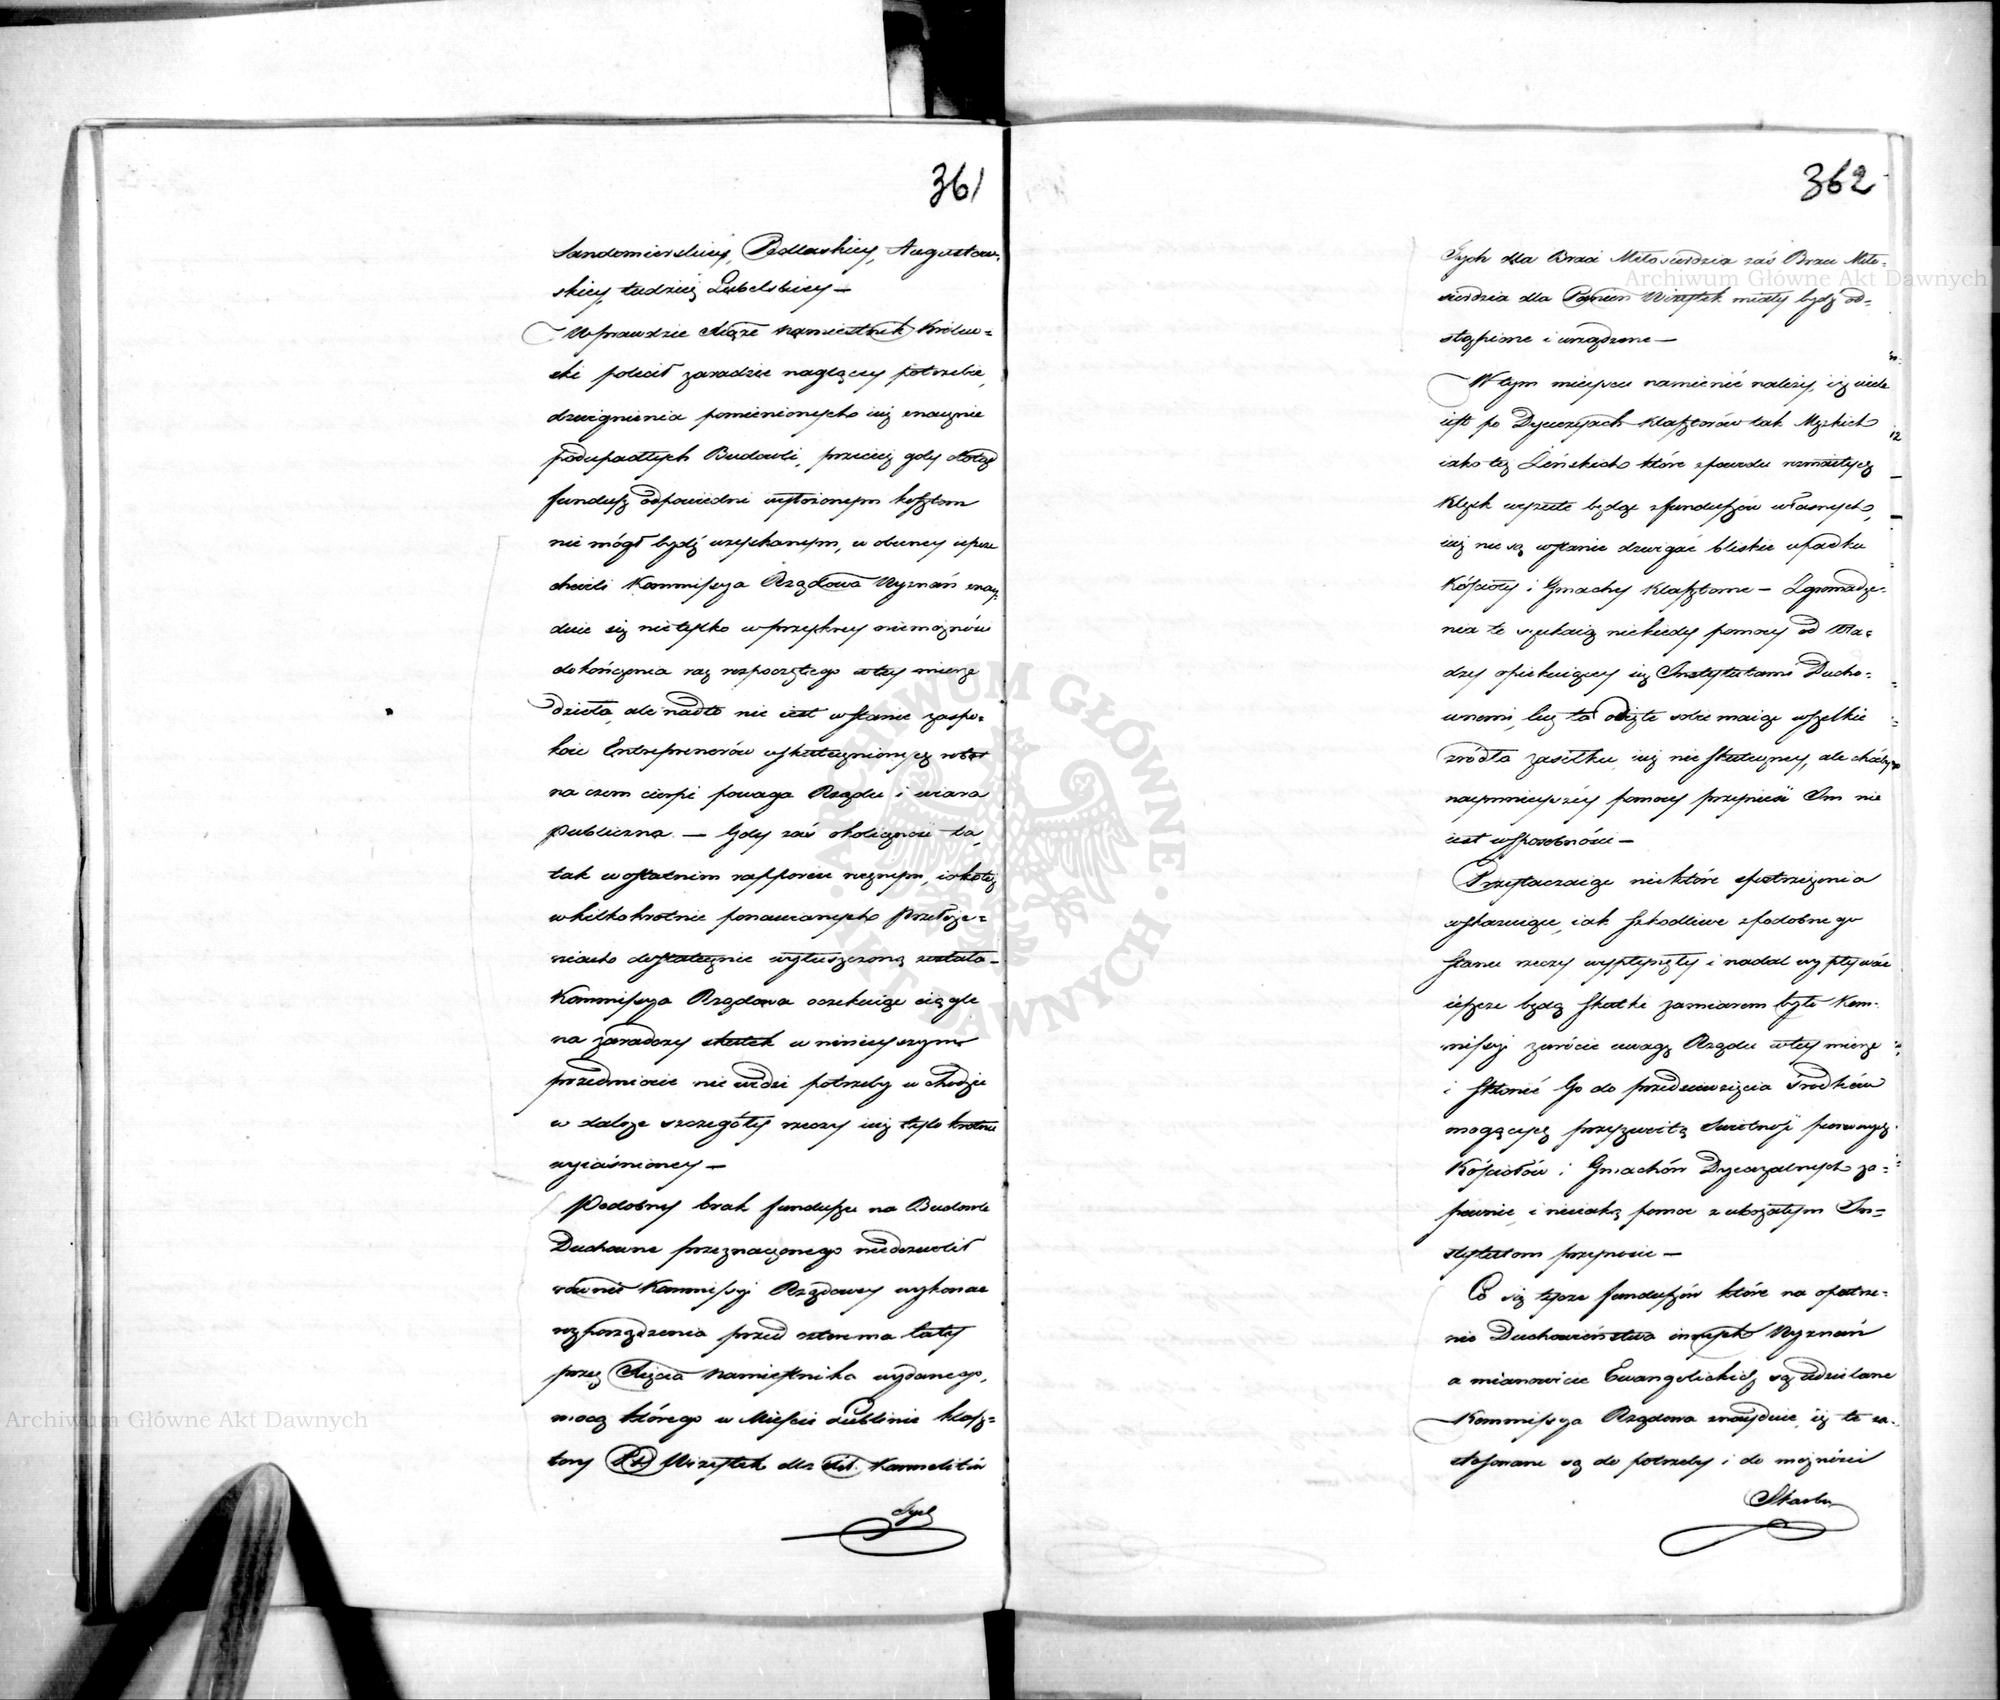 361
Sandomierskiey, Podlaskiey, Augustow-
skiey, tudzież Lubelskiey —
Wprawdzie Xiąże Namiestnik Królew-
ski polecił zaradzić naglącey potrzebie,
dzwignienia pomienionych iuż znacznie
podupadłych Budowli, przecież gdy dotąd
fundusz odpowiedni wyłożonym kosztom
nie mógł bydź uzyskanym, w obecney ieszcze
chwili Kommissya Rządowa Wyznań znay-
duie się nietylko w przykrey niemożności
dokończenia raz rozpoczętego w tey mierze
dzieła, ale nadto nie iest w stanie zaspo-
koić Entreprenerów uskutecznionych robot
na czem cierpi powaga Rządu i wiara
publiczna. — Gdy zaś okoliczność ta,
tak w ostatnim rapporcie rocznym, iakoteż
w kilkokrotnie ponawianych Przełoże-
niach dostatecznie wyłuszczoną została —
Kommissya Rządowa oczekuiąc ciągle
na zaradczy skutek w ninieyszym
przedmiocie nie widzi potrzeby wchodzić
w dalsze szczegóły rzeczy iuż tylo krotnie
wyiaśnioney —
Podobny brak funduszu na Budowle
Duchowne przeznaczonego niedozwolił
również Kommissyi Rządowey wykonać
rozporządzenia przed czterma laty
przez Xięcia Namiestnika wydanego,
mocą którego w Mieście Lublinie klasz-
tory PP. Wizytek dla XX. Karmelitów
Tych
362
Tych dla Braci Miłosierdzia zaś Braci Miło-
sierdzia dla Panien Wizytek miały bydź od-
stąpione i urządzone —
W tym mieyscu namienić należy, iż wiele
iest po Dyecezyach Klasztorów tak Męzkich
iako też Żeńskich które z powodu rozmaitych
Klęsk wyzute będąc z funduszów własnych,
iuż nie są w stanie dzwigać bliskie upadku
Kościoły i Gmachy Klasztorne — Zgromadze-
nia te szukaią niekiedy pomocy od Wła-
dzy opiekuiącey się Instytutami Ducho-
wnemi, lecz ta odięte sobie maiąc wszelkie
źródła zasiłku, iuż nie skuteczney, ale choćby
naymnieyszey pomocy przynieść Im nie
iest w sposobności —
Przytaczaiąc niektóre spostrzeżenia
wskazuiące, iak szkodliwe z podobnego
stanu rzeczy wypłynęły i nadal wypływać
ieszcze będą skutki zamiarem było Kom-
missyi zwrócić uwagę Rządu w tey mierze
i skłonić Go do przedsiewzięcia środków
mogących przyzwoitą świetność pierwszych
Kościołów i Gmachów Dyecezalnych za-
pewnić, i nieiaką pomoc zubożałym In-
stytutom przynieść —
Co się tycze funduszów które na opatrze-
nie Duchowieństwa innych Wyznań
a mianowicie Ewangelickich są udzielane
Kommissya Rządowa znayduie, iż te za-
stosowane są do potrzeby i do możności
Skarbu
Archiwum Główne Akt Dawnych
Archiwum Główne Akt Dawnych
ARCHIWUM GŁÓWNE AKT DAWNYCH